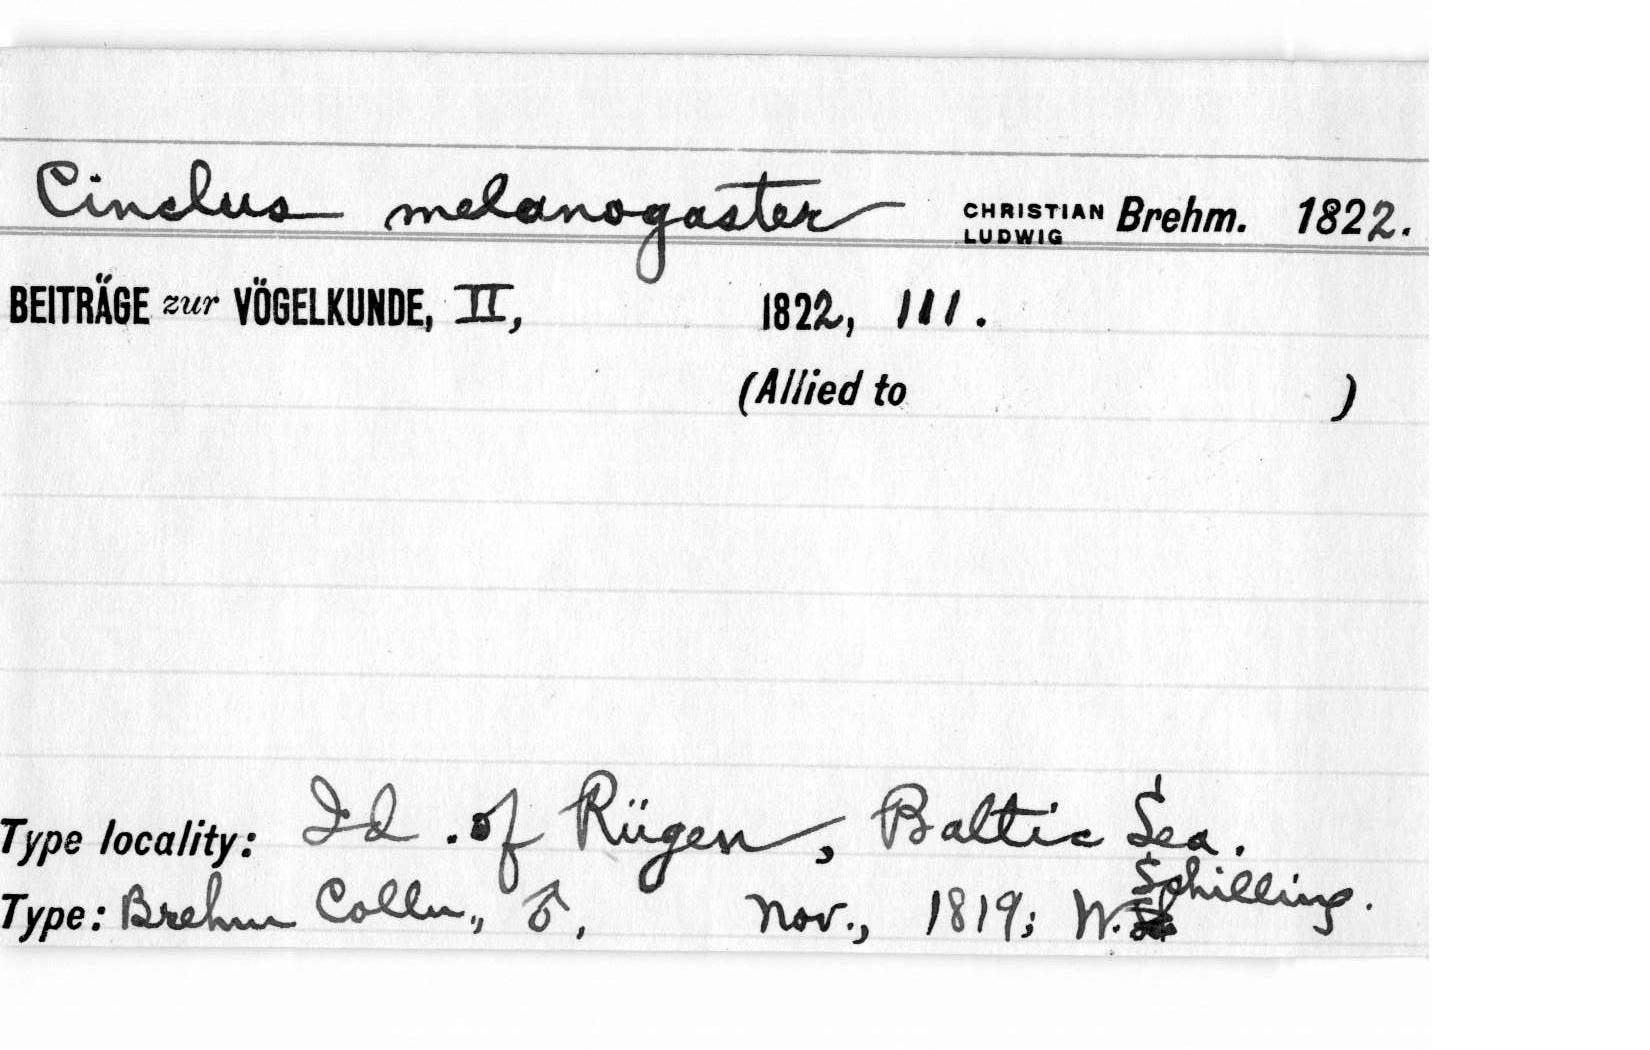 Cinclus melanogaster CHRISTIAN LUDWIG Brehm. 1822.
BEITRÄGE zur VÖGELKUNDE, II, 1822, 111.
(Allied to )
Type locality: Id. of Rügen, Baltic Sea.
Type: Brehm Colln., ♂, Nov., 1819; W. Schilling.